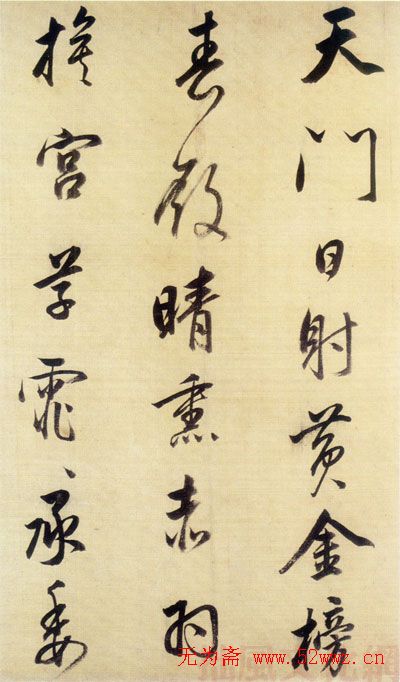 天門日射黃金榜
春殿晴熏赤羽
旗宮草霏〻承委
无为斋 www.52wwz.cn